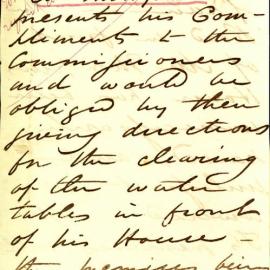 presents his Com-
pliments to the
Commissioners
and would be
obliged by their
giving directions
for the clearing
of the water
tables in front
of his House -
the